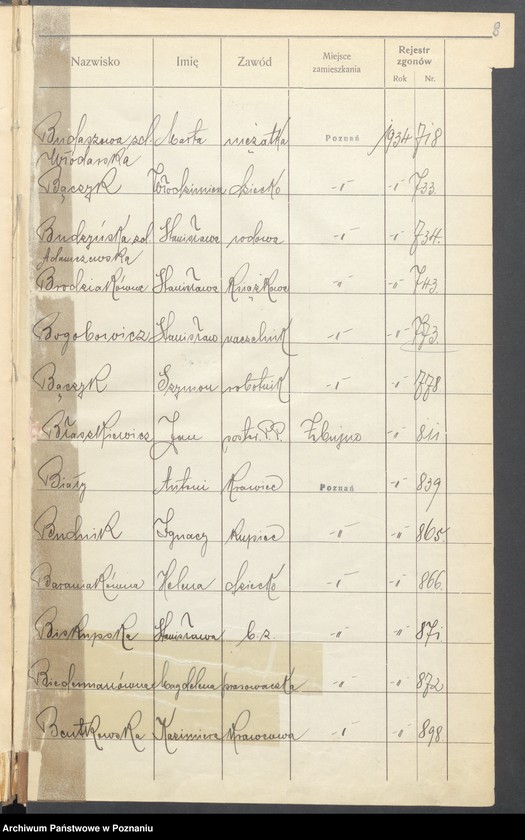 8
Nazwisko Imię Zawód Miejsce zamieszkania Rejestr zgonów Rok Nr.
Budaszewa zd. Marta mężatka Poznań 1934 718
Włódarska
Bączyk Włodzimierz dziecko -"- -"- 733.
Budzyńska zd. Stanisława wdowa -"- -"- 734.
Adamczewska
Brodziakówna Stanisława -"- -"- 743
Bogobowicz Stanisław naczelnik -"- -"- 773.
Bączyk Szymon robotnik -"- -"- 778
Błaszkiewicz Jan poster. P.P. Zbujno -"- 811
Biały Antoni krawiec Poznań -"- 839
Budnik Ignacy kupiec -"- -"- 865
Baraniakówna Helena dziecko -"- -"- 866.
Biskupska Stanisława b. z. -"- -"- 871
Biedermanówna Magdalena prasowaczka -"- -"- 872
Bentkowska Kazimiera krawcowa -"- -"- 898
Archiwum Państwowe w Poznaniu